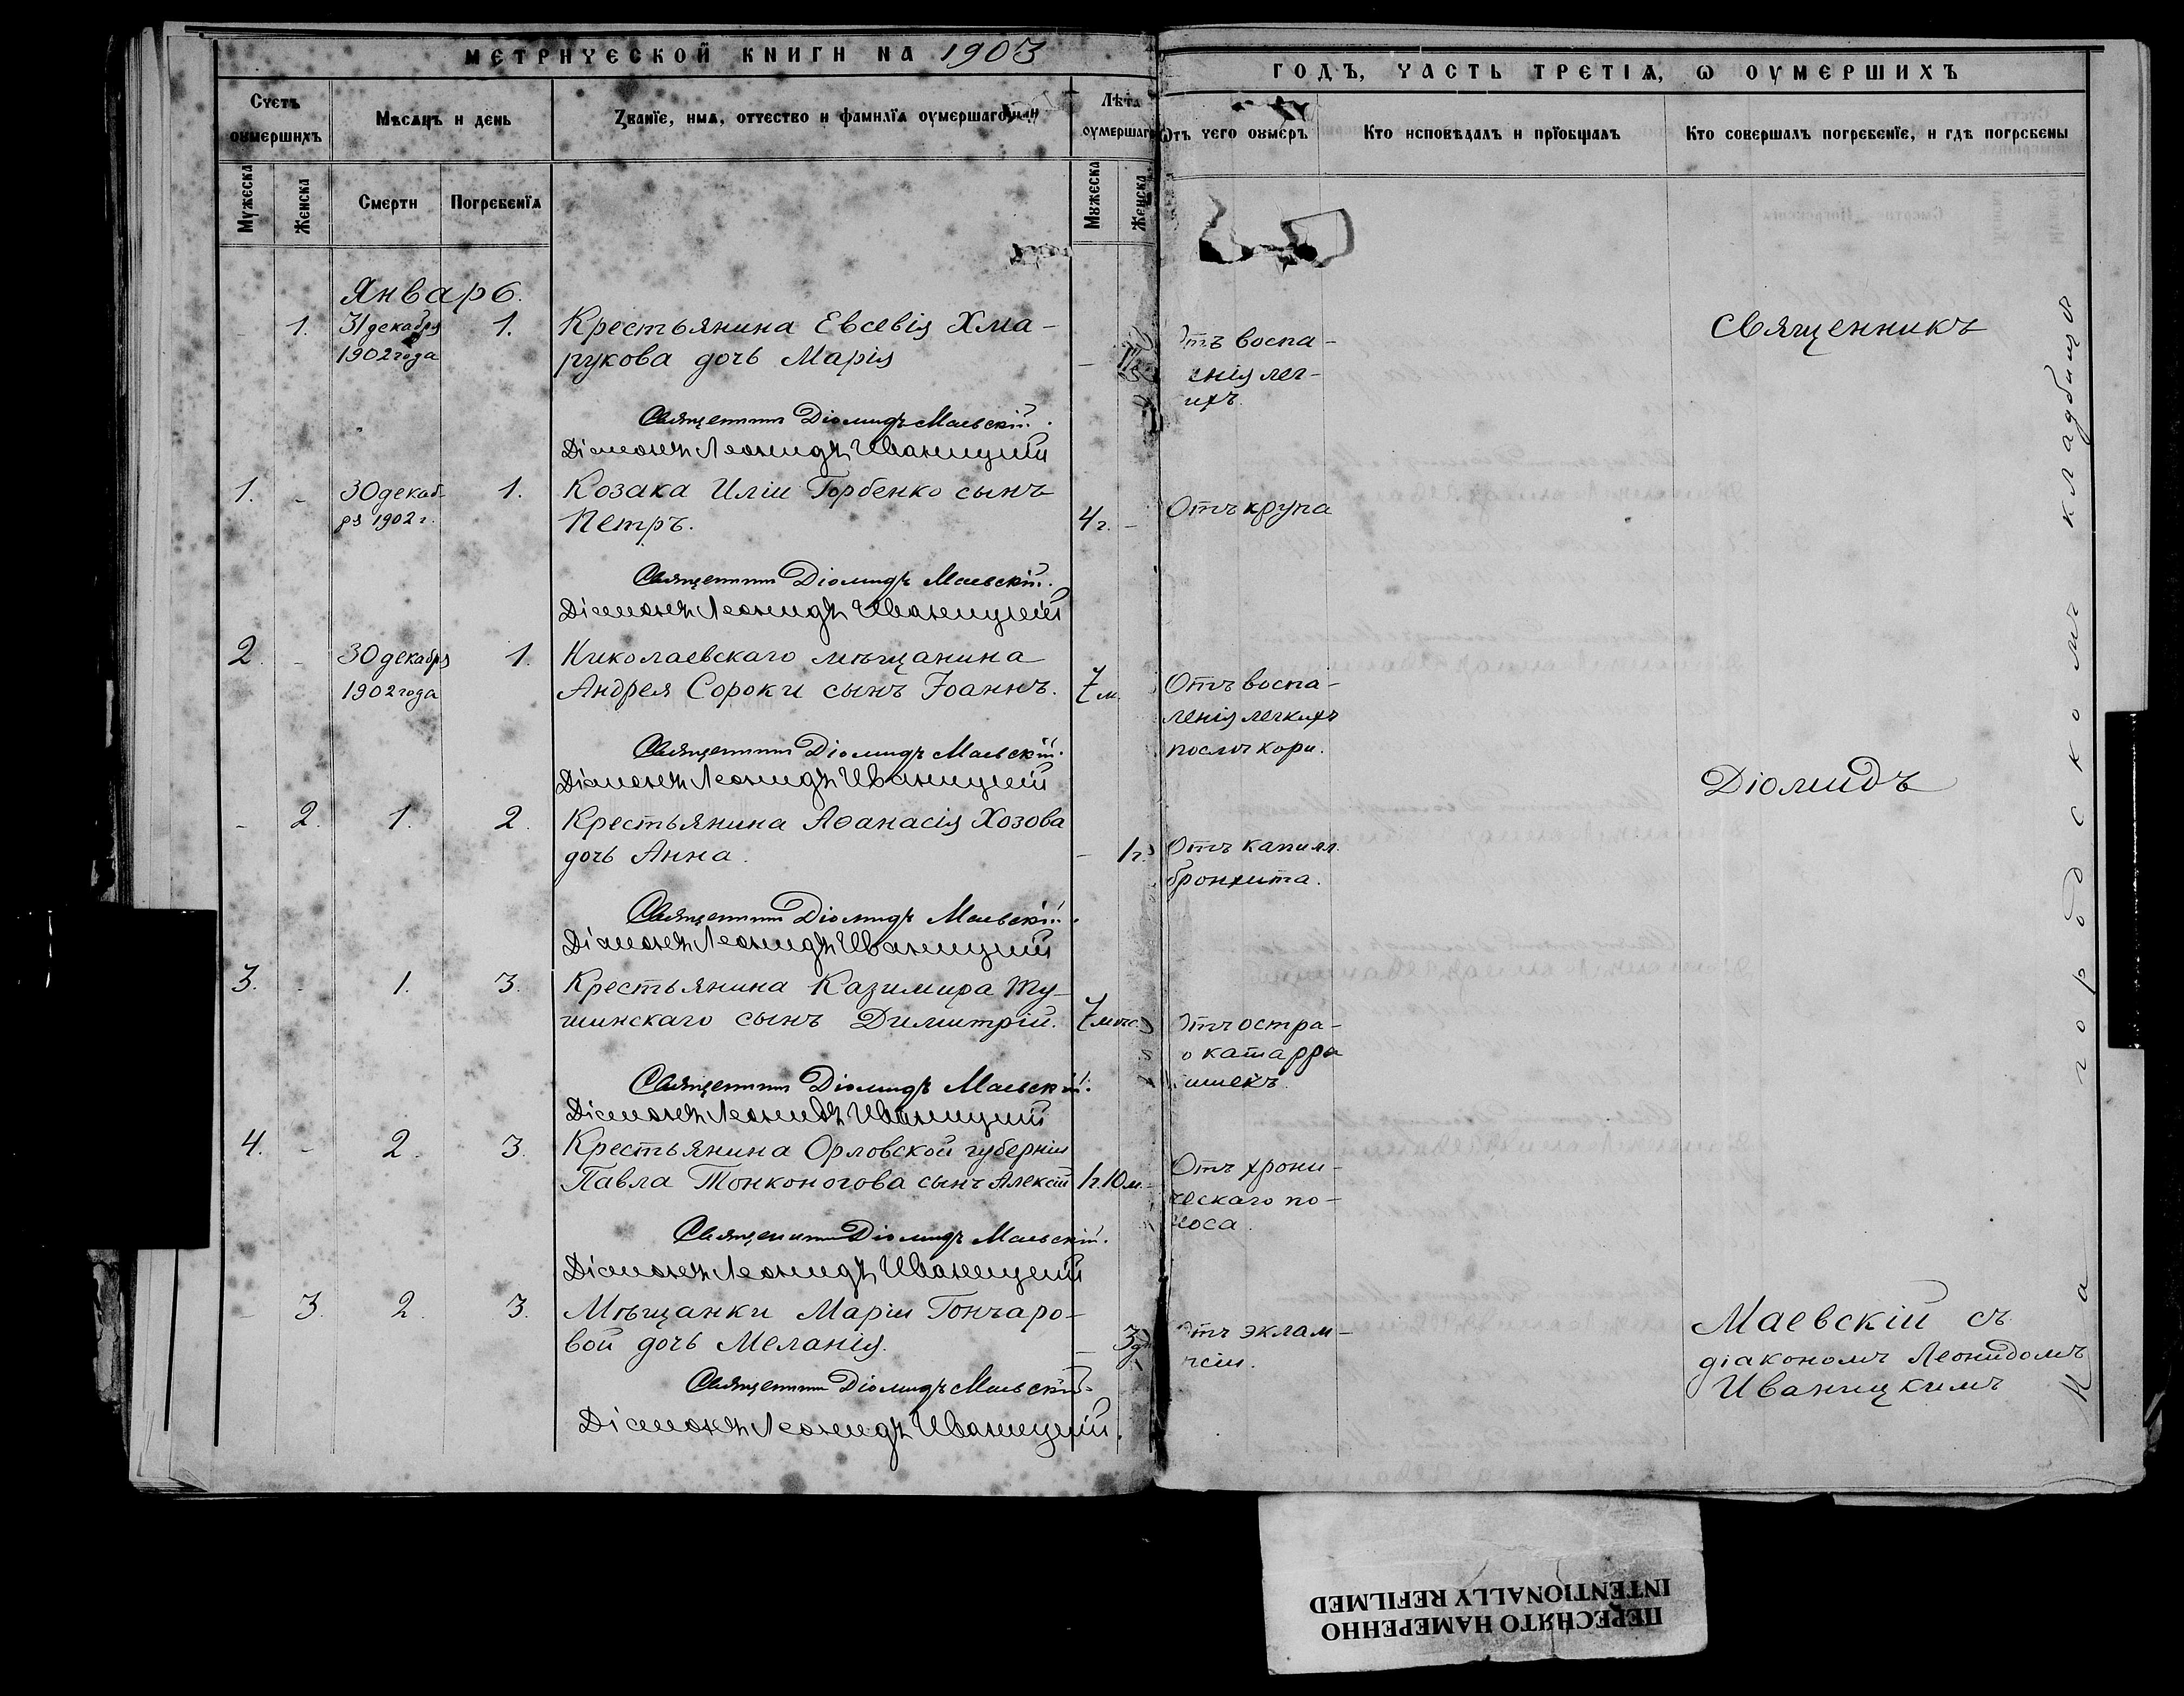 МЕТРИЧЕСКОЙ КНИГИ НА 1903
ГОДЪ, ЧАСТЬ ТРЕТІѦ, Ѡ ОУМЕРШИХЪ
Счетъ оумершихъ
Мѣсѧцъ и день
Званїе, имѧ, отчество и фамилїѧ оумершагѡ
Лѣта оумершагѡ
Ѿтъ чего оумеръ
Кто исповѣдалъ и прїобщалъ
Кто совершалъ погребенїе, и гдѣ погребены
Мужеска
Женска
Смерти
Погребенїѧ
Мужеска
Женска
Январь.
- 1. 31 декабря 1. Крестьянина Евсевія Хма-
1902 года рукова дочь Марія -
Отъ воспа-
енія лег-
ихъ.
Священникъ Діомидъ Маевскій.
Діаконъ Леонидъ Иваницкій
1. - 30 декаб- 1. Козака Иліи Горбенко сынъ
ря 1902 г. Петръ. 4 г. - Отъ крупа
Священникъ Діомидъ Маевскій.
Діаконъ Леонидъ Иваницкій
2. - 30 декабря 1. Николаевскаго мѣщанина
1902 года Андрея Сороки сынъ Іоаннъ. 7 м. Отъ воспа-
ленія легкихъ
послѣ кори.
Священникъ Діомидъ Маевскій.
Діаконъ Леонидъ Иваницкій
- 2. 1. 2. Крестьянина Аѳанасія Хозова
дочь Анна. - 1 г. Отъ капилл.
бронхита.
Священникъ Діомидъ Маевскій.
Діаконъ Леонидъ Иваницкій
3. - 1. 3. Крестьянина Казимира Ту-
шинскаго сынъ Димитрій. 7 мѣс. Отъ остра-
о катарра
ишекъ.
Священникъ Діомидъ Маевскій.
Діаконъ Леонидъ Иваницкій
4. - 2. 3. Крестьянина Орловской губерніи
Павла Тонконогова сынъ Алексій 1 г. 10 м. - Отъ хрони-
ческаго по-
носа.
Священникъ Діомидъ Маевскій.
Діаконъ Леонидъ Иваницкій
- 3. 2. 3. Мѣщанки Маріи Гончаро-
вой дочь Меланія. - 3 дн Отъ эклам-
псіи.
Священникъ Діомидъ Маевскій.
Діаконъ Леонидъ Иваницкій.
Священникъ
Діомидъ
Маевскій съ
діакономъ Леонидомъ
Иваницкимъ
На городскомъ кладбищѣ
ПЕРЕСНЯТО НАМЕРЕННО
INTENTIONALLY REFILMED